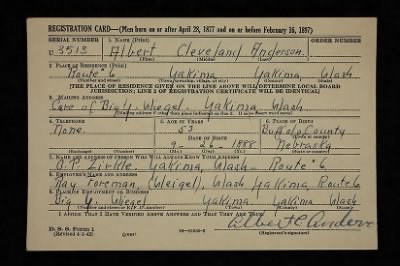 REGISTRATION CARD—(Men born on or after April 28, 1877 and on or before February 16, 1897)
SERIAL NUMBER 1. NAME (Print) ORDER NUMBER
U 3513 Albert Cleveland Anderson
(First) (Middle) (Last)
2. PLACE OF RESIDENCE (Print)
Route 6 Yakima Yakima Wash
(Number and street) (Town, township, village, or city) (County) (State)
[THE PLACE OF RESIDENCE GIVEN ON THE LINE ABOVE WILL DETERMINE LOCAL BOARD
JURISDICTION; LINE 2 OF REGISTRATION CERTIFICATE WILL BE IDENTICAL]
3. MAILING ADDRESS
Care of Big Y. Weigel Yakima Wash.
[Mailing address if other than place indicated on line 2. If same insert word same]
4. TELEPHONE 5. AGE IN YEARS 6. PLACE OF BIRTH
None 53 Buffalo County
DATE OF BIRTH
9 - 26 - 1888 Nebraska
(Exchange) (Number) (Mo.) (Day) (Yr.) (State or country)
7. NAME AND ADDRESS OF PERSON WHO WILL ALWAYS KNOW YOUR ADDRESS
O.P. Zirkle, Yakima, Wash Route 6
8. EMPLOYER'S NAME AND ADDRESS
Ray Foreman, (Weigel), Wash Yakima Route 6
9. PLACE OF EMPLOYMENT OR BUSINESS
Big Y. Weigel Yakima Yakima Wash
(Number and street or R. F. D. number) (Town) (County) (State)
I AFFIRM THAT I HAVE VERIFIED ABOVE ANSWERS AND THAT THEY ARE TRUE.
D. S. S. Form 1
(Revised 4-1-42) (over)
Albert C. Anderson
(Registrant's signature)